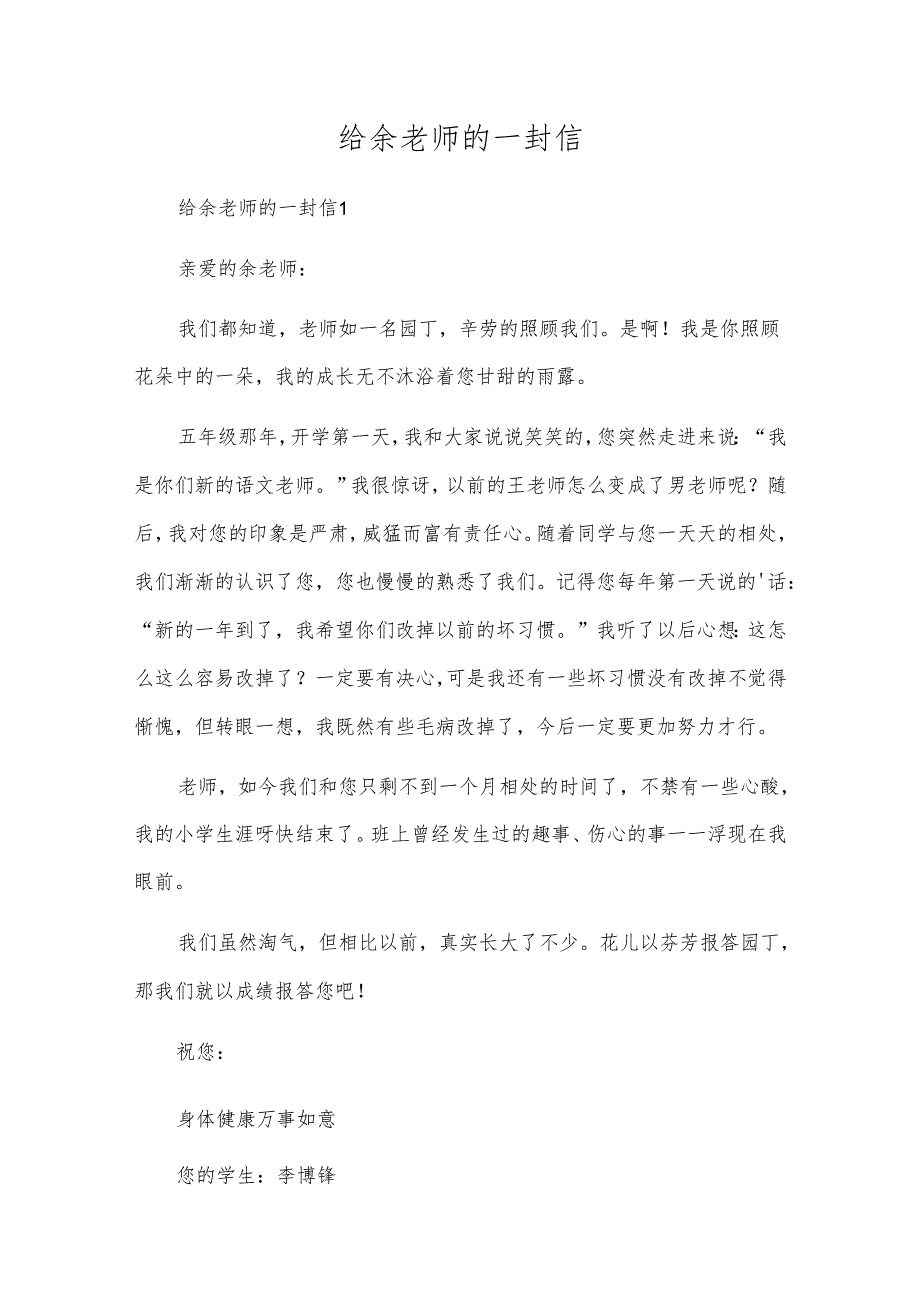 给余老师的一封信
给余老师的一封信1
亲爱的余老师：
我们都知道，老师如一名园丁，辛劳的照顾我们。是啊！我是你照顾
花朵中的一朵，我的成长无不沐浴着您甘甜的雨露。
五年级那年，开学第一天，我和大家说说笑笑的，您突然走进来说：“我
是你们新的语文老师。”我很惊讶，以前的王老师怎么变成了男老师呢？随
后，我对您的印象是严肃，威猛而富有责任心。随着同学与您一天天的相处，
我们渐渐的认识了您，您也慢慢的熟悉了我们。记得您每年第一天说的'话：
“新的一年到了，我希望你们改掉以前的坏习惯。”我听了以后心想：这怎
么这么容易改掉了？一定要有决心，可是我还有一些坏习惯没有改掉不觉得
惭愧，但转眼一想，我既然有些毛病改掉了，今后一定要更加努力才行。
老师，如今我们和您只剩不到一个月相处的时间了，不禁有一些心酸，
我的小学生涯呀快结束了。班上曾经发生过的趣事、伤心的事一一浮现在我
眼前。
我们虽然淘气，但相比以前，真实长大了不少。花儿以芬芳报答园丁，
那我们就以成绩报答您吧！
祝您：
身体健康万事如意
您的学生：李博锋